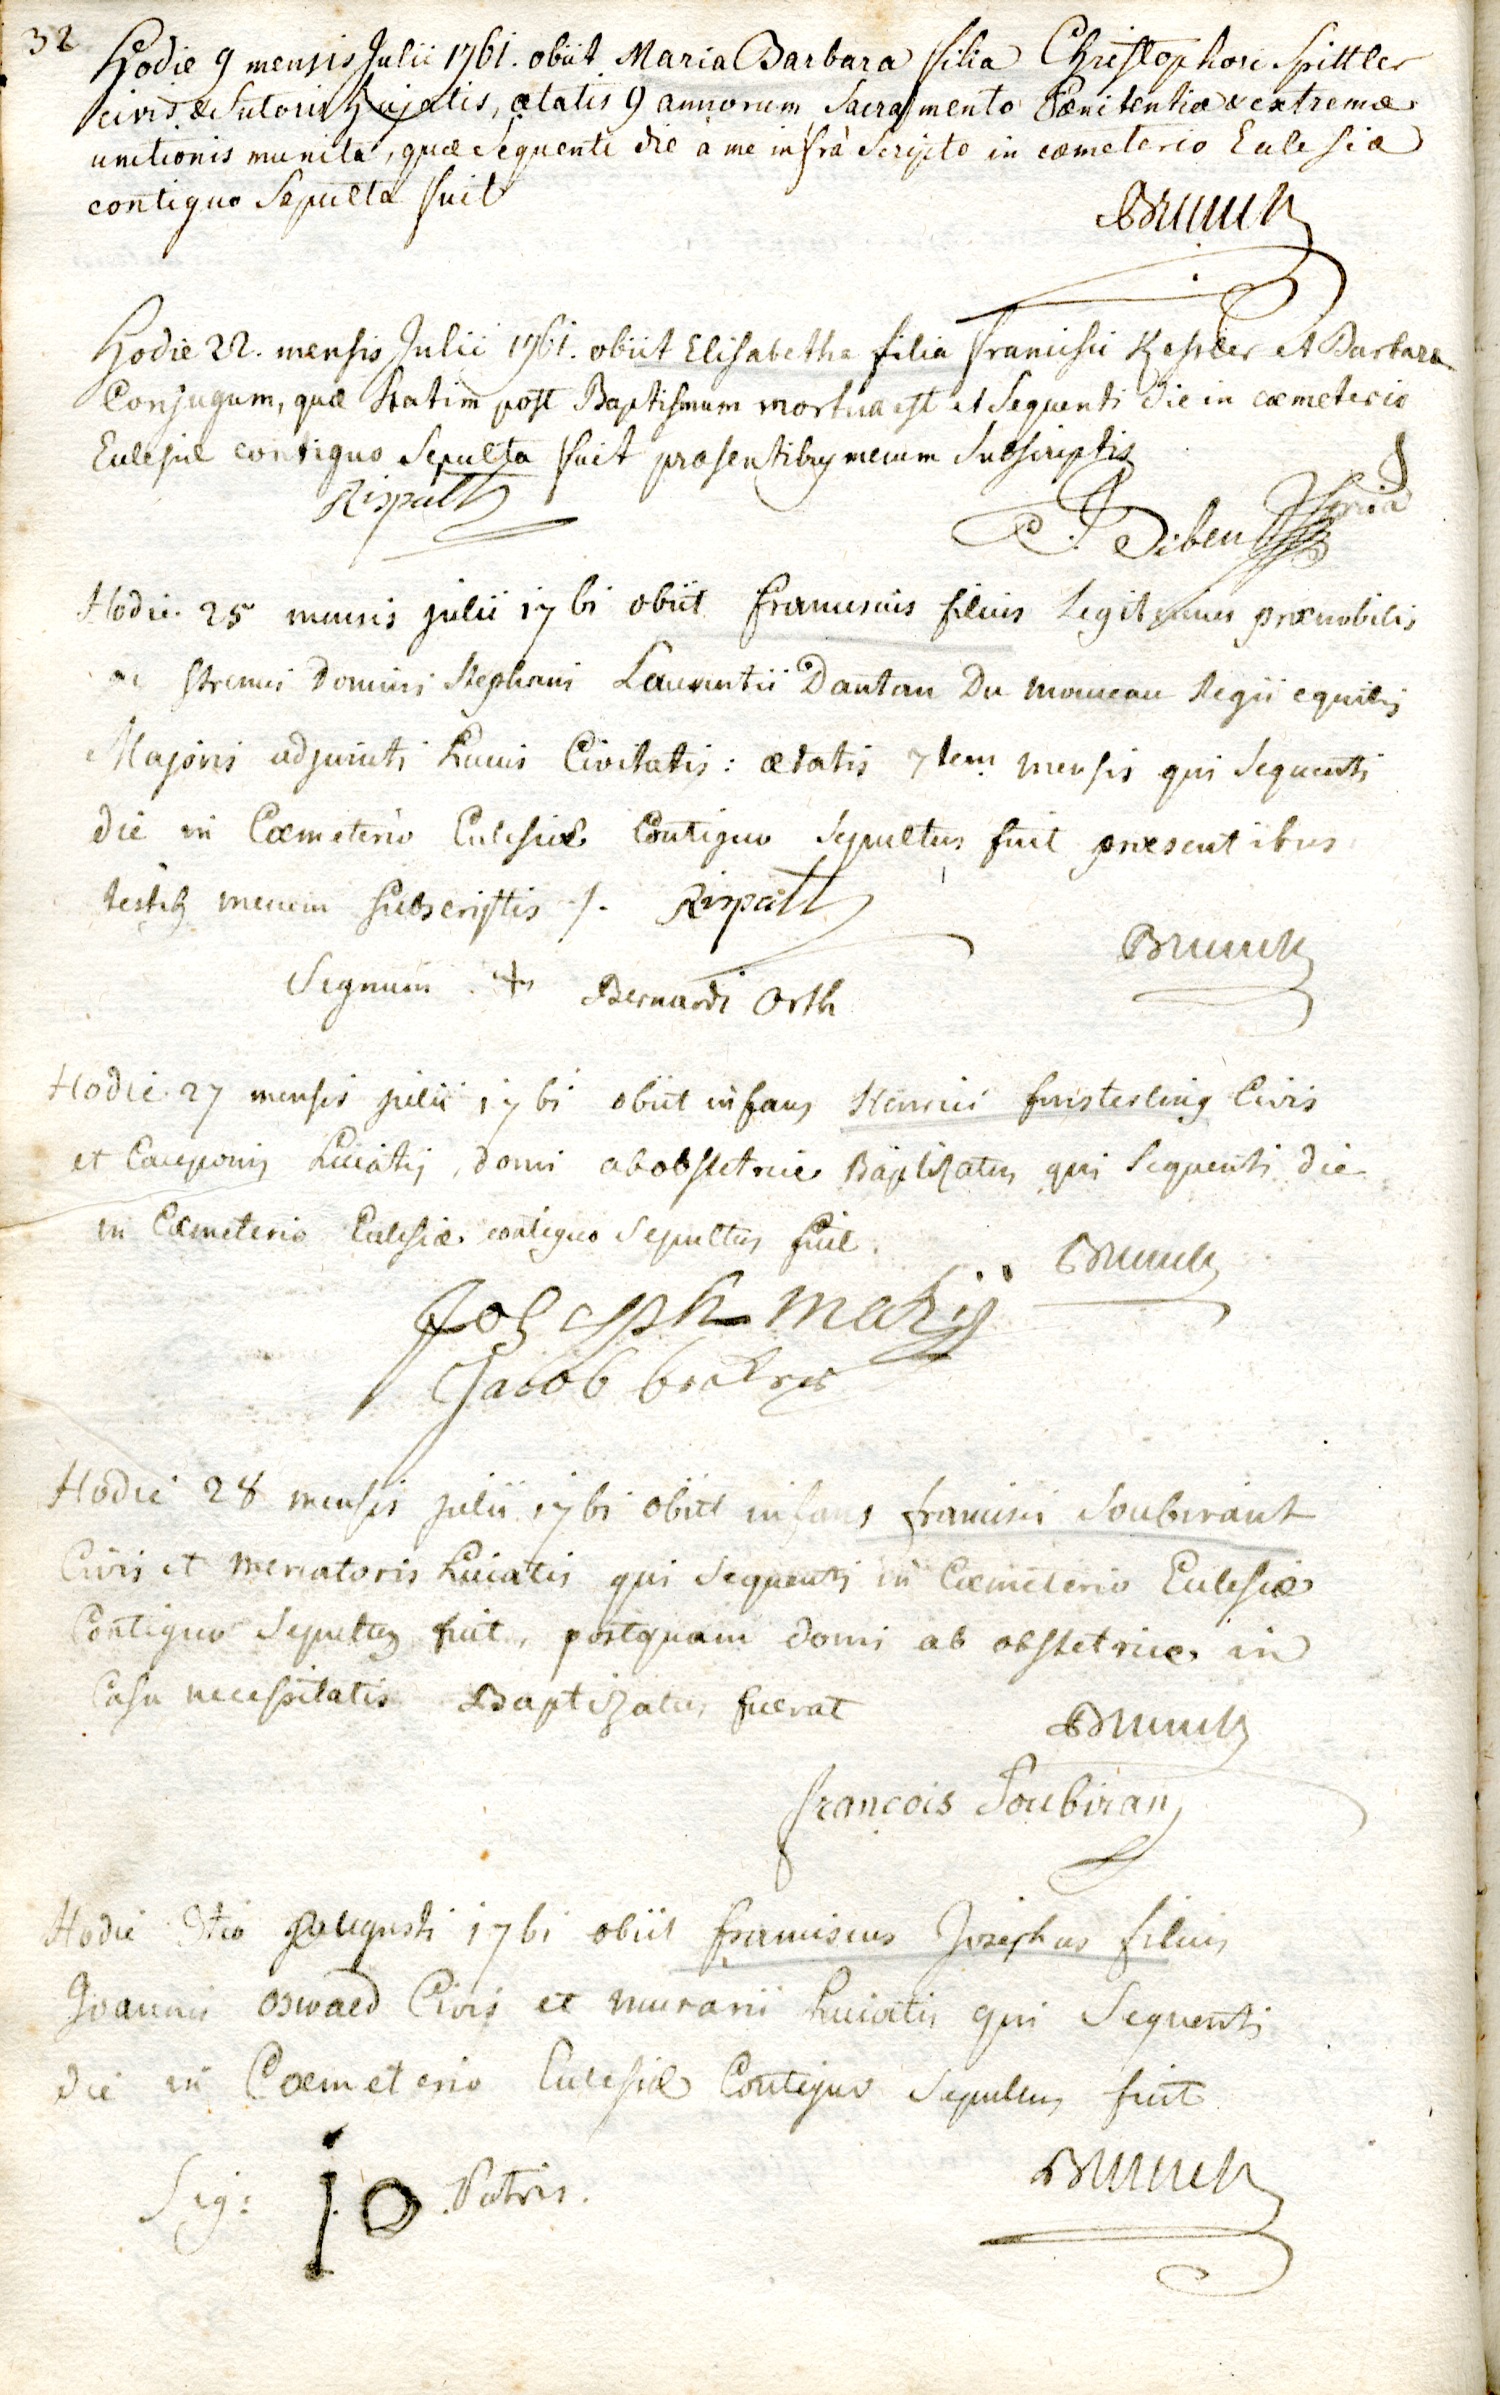 32
Hodie 9 mensis Julii 1761. obiit Maria Barbara filia Christophori Spittler
civis & Sutoris hujatis, ætatis 9 annorum Sacramento Pænitentiæ & extremæ
unctionis munita, quæ Sequenti die à me infrà Scripto in cæmeterio Eclesiæ
contiguo Sepulta fuit
Brunck
Hodie 22. mensis Julii 1761. obiit Elisabetha filia Francisci Kessler et Barbara
Conjugum, quæ Statim post Baptismum mortua est et Sequenti die in cæmeterio
Eclesiæ contiguo Sepulta fuit præsentibus mecum Subscriptis
Rispalt
Hodie 25 mensis julii 1761 obiit franciscus filius Legitimus prænobilis
ac strenui Domini Stephani Laurentii Dantan Du Monceau Regii equitis
Majoris adjuncti hucus Civitatis: ætatis 7tem mensis qui Sequenti
die in Cæmeterio Eclesiæ Contiguo Sepultus fuit præsentibus
testib9 mecum Subscriptis /. Rispalt
Brunck
Signum + Bernardi Orth
Hodie 27 mensis julii 1761 obiit infans Henrici finsterling Civis
et Cauponis huiatis, domi ab obstetrice Baptizatus qui Sequenti die
in Cæmeterio Eclesiæ contiguo Sepultus fuit.
Brunck
Joseph mahij
Jacob
Hodie 28 mensis julii 1761 obiit infans francisci Soubirant
Civis et Mercatoris huiatis qui Sequenti in Cæmeterio Eclesiæ
Contiguo Sepultus fuit, postquam domi ab obstetrice in
Casu necessitatis Baptizatus fuerat
Brunck
francois Soubiran
Hodie Augusti 1761 obiit franciscus Josephus filius
Joannis Oswald Civis et murarii huiatis qui Sequenti
die in Cæmeterio Eclesiæ Contiguo Sepultus fuit
Sig: Patris.
Brunck